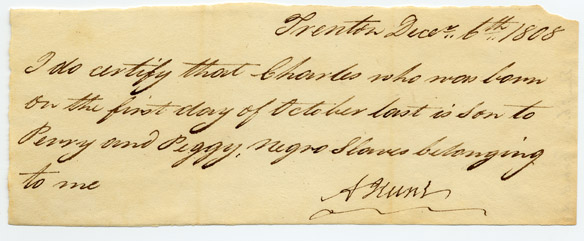 Trenton Decer. 6th. 1808
I do certify that Charles who was born
on the first day of October last is Son to
Perry and Peggy, Negro Slaves belonging
to me
A Hunt